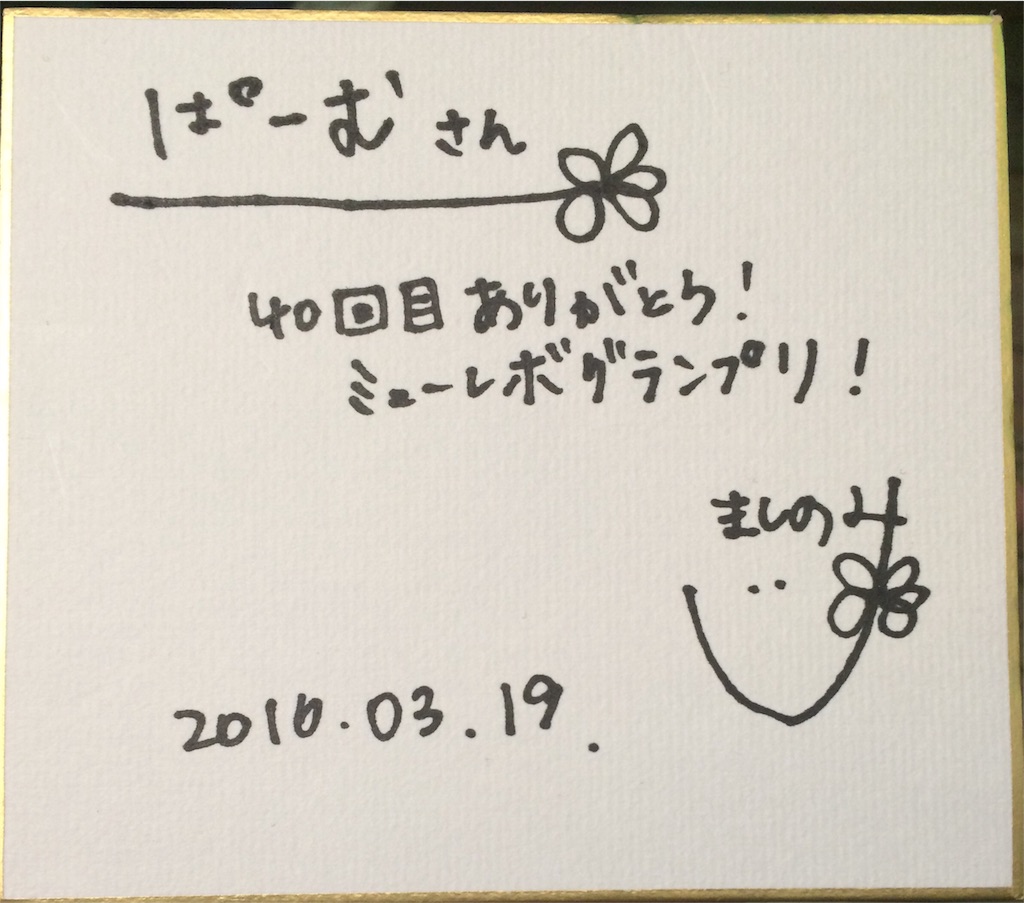 ぱーむさん
40回目ありがとう!
ミューレボグランプリ!
ましのみ
2016.03.19.